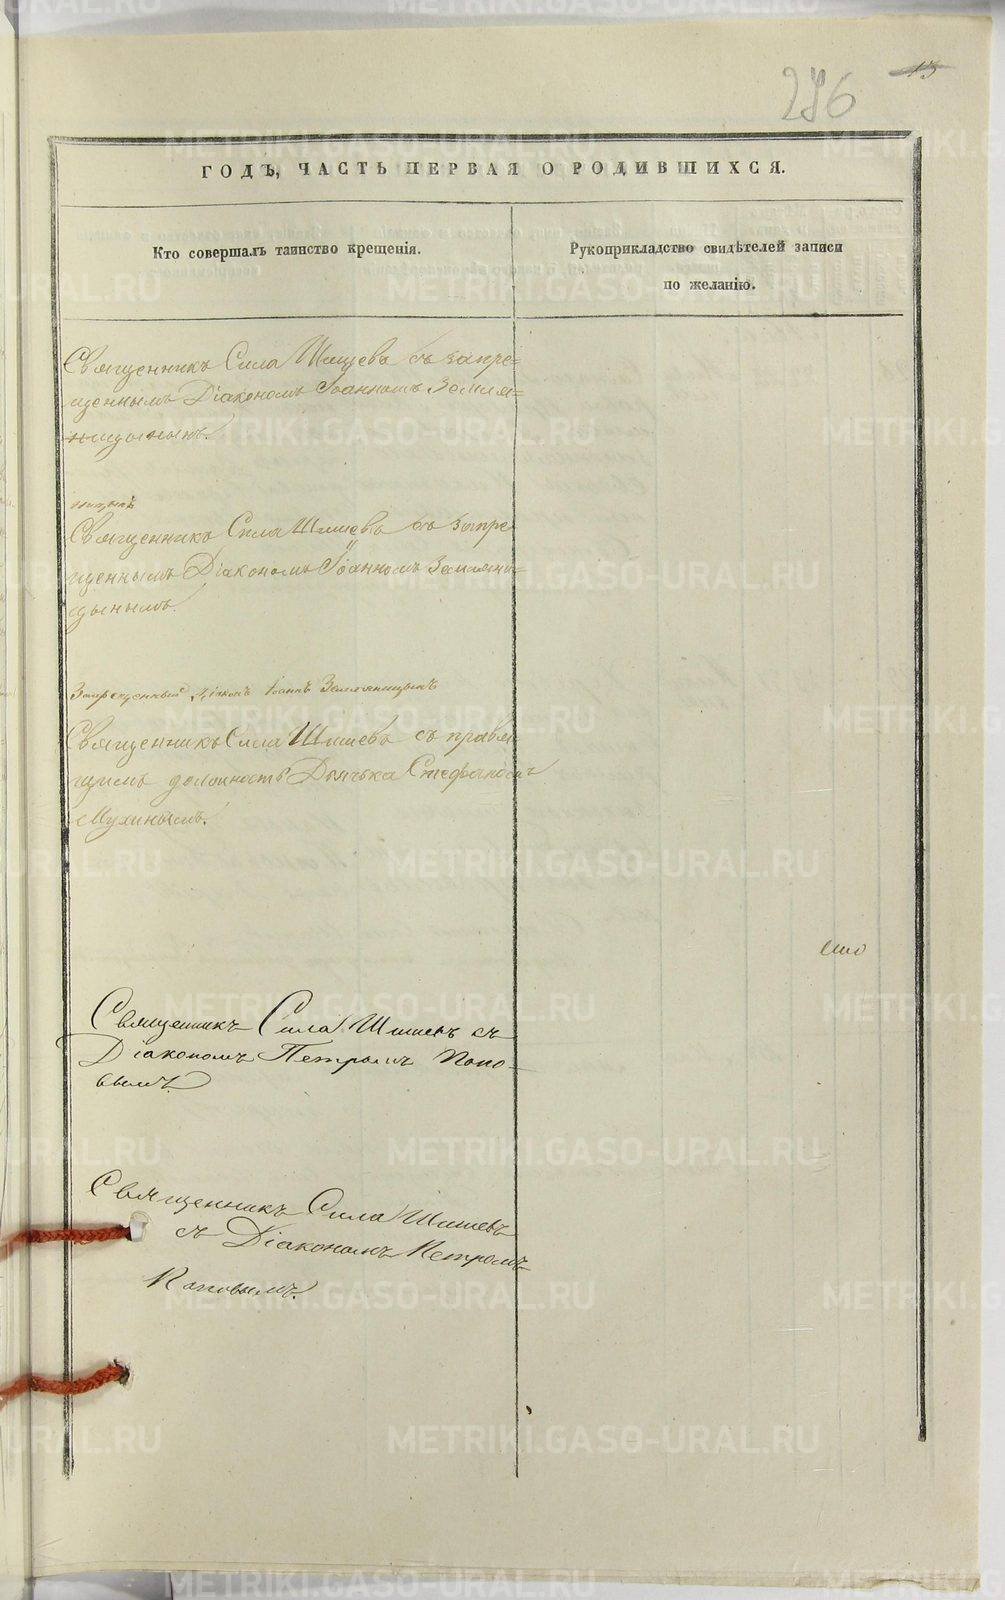 276
13
ГОДЪ, ЧАСТЬ ПЕРВАЯ О РОДИВШИХСЯ.
Кто совершалъ таинство крещенія.
Рукоприкладство свидѣтелей записи
по желанію.
Священникъ Сила Шишевъ съ запре=
щеннымъ Діакономъ Іоанномъ Земля=
ницынымъ.
ницынъ
Священникъ Сила Шишевъ съ запре
щеннымъ Діакономъ Іоанномъ Земляни-
цынымъ.
Запрещенный Діаконъ Іоаннъ Земляницынъ
Священникъ Сила Шишевъ съ правя
щимъ должность Дьячька Стефаномъ
Мухинымъ.
Священникъ Сила Шишевъ съ
Діакономъ Петромъ Попо-
вымъ
Священникъ Сила Шишевъ
съ Діакономъ Петромъ
Поповымъ.
METRIKI.GASO-URAL.RU